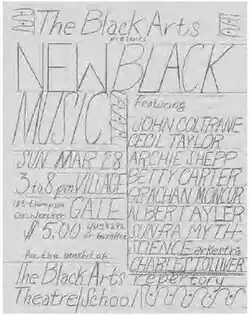 The Black Arts
presents
NEW BLACK
MUSIC
Featuring
JOHN COLTRANE
CECIL TAYLOR
ARCHIE SHEPP
BETTY CARTER
GRACHAN MONCUR
ALBERT AYLER
SUN-RA MYTH
SCIENCE arkestra
CHARLES TOLLIVER
SUN MAR 28
3 to 8 pm VILLAGE
GATE
$5.00
For the benefit of
The Black Arts repertory
Theatre/School